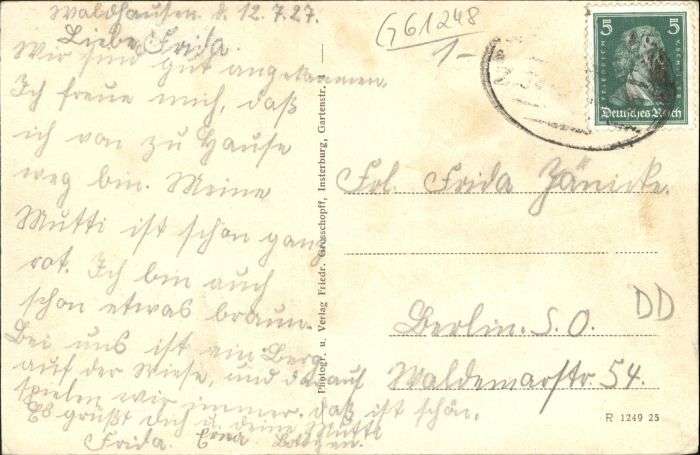 Waldhausen d. 12.7.27.
Liebe Frida.
Wir sind gut angekommen.
Ich freue mich, daß
ich von zu Hause
weg bin. Meine
Mutti ist schon ganz
rot. Ich bin auch
schon etwas braun.
Bei uns ist ein Berg
auf der Wiese, und darauf
spielen wir immer. daß ist schön.
Es grüßt dich d. deine Mutti
Frida. Erna.
G61248
1-
5 5
FRIEDRICH V. SCHILLER
Deutsches Reich
Photogr. u. Verlag Friedr. Grosschopff, Insterburg, Gartenstr.
Frl. Frida Jänicke.
Berlin. S. O.
Waldemarstr 54.
DD
R 1249 25